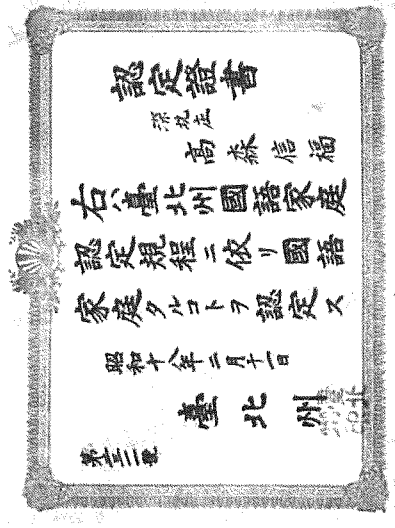 認定證書
深坑庄
高森信福
右ハ臺北州國語家庭
認定規程ニ依リ國語
家庭タルコトヲ認定ス
昭和十八年二月十一日
臺北州